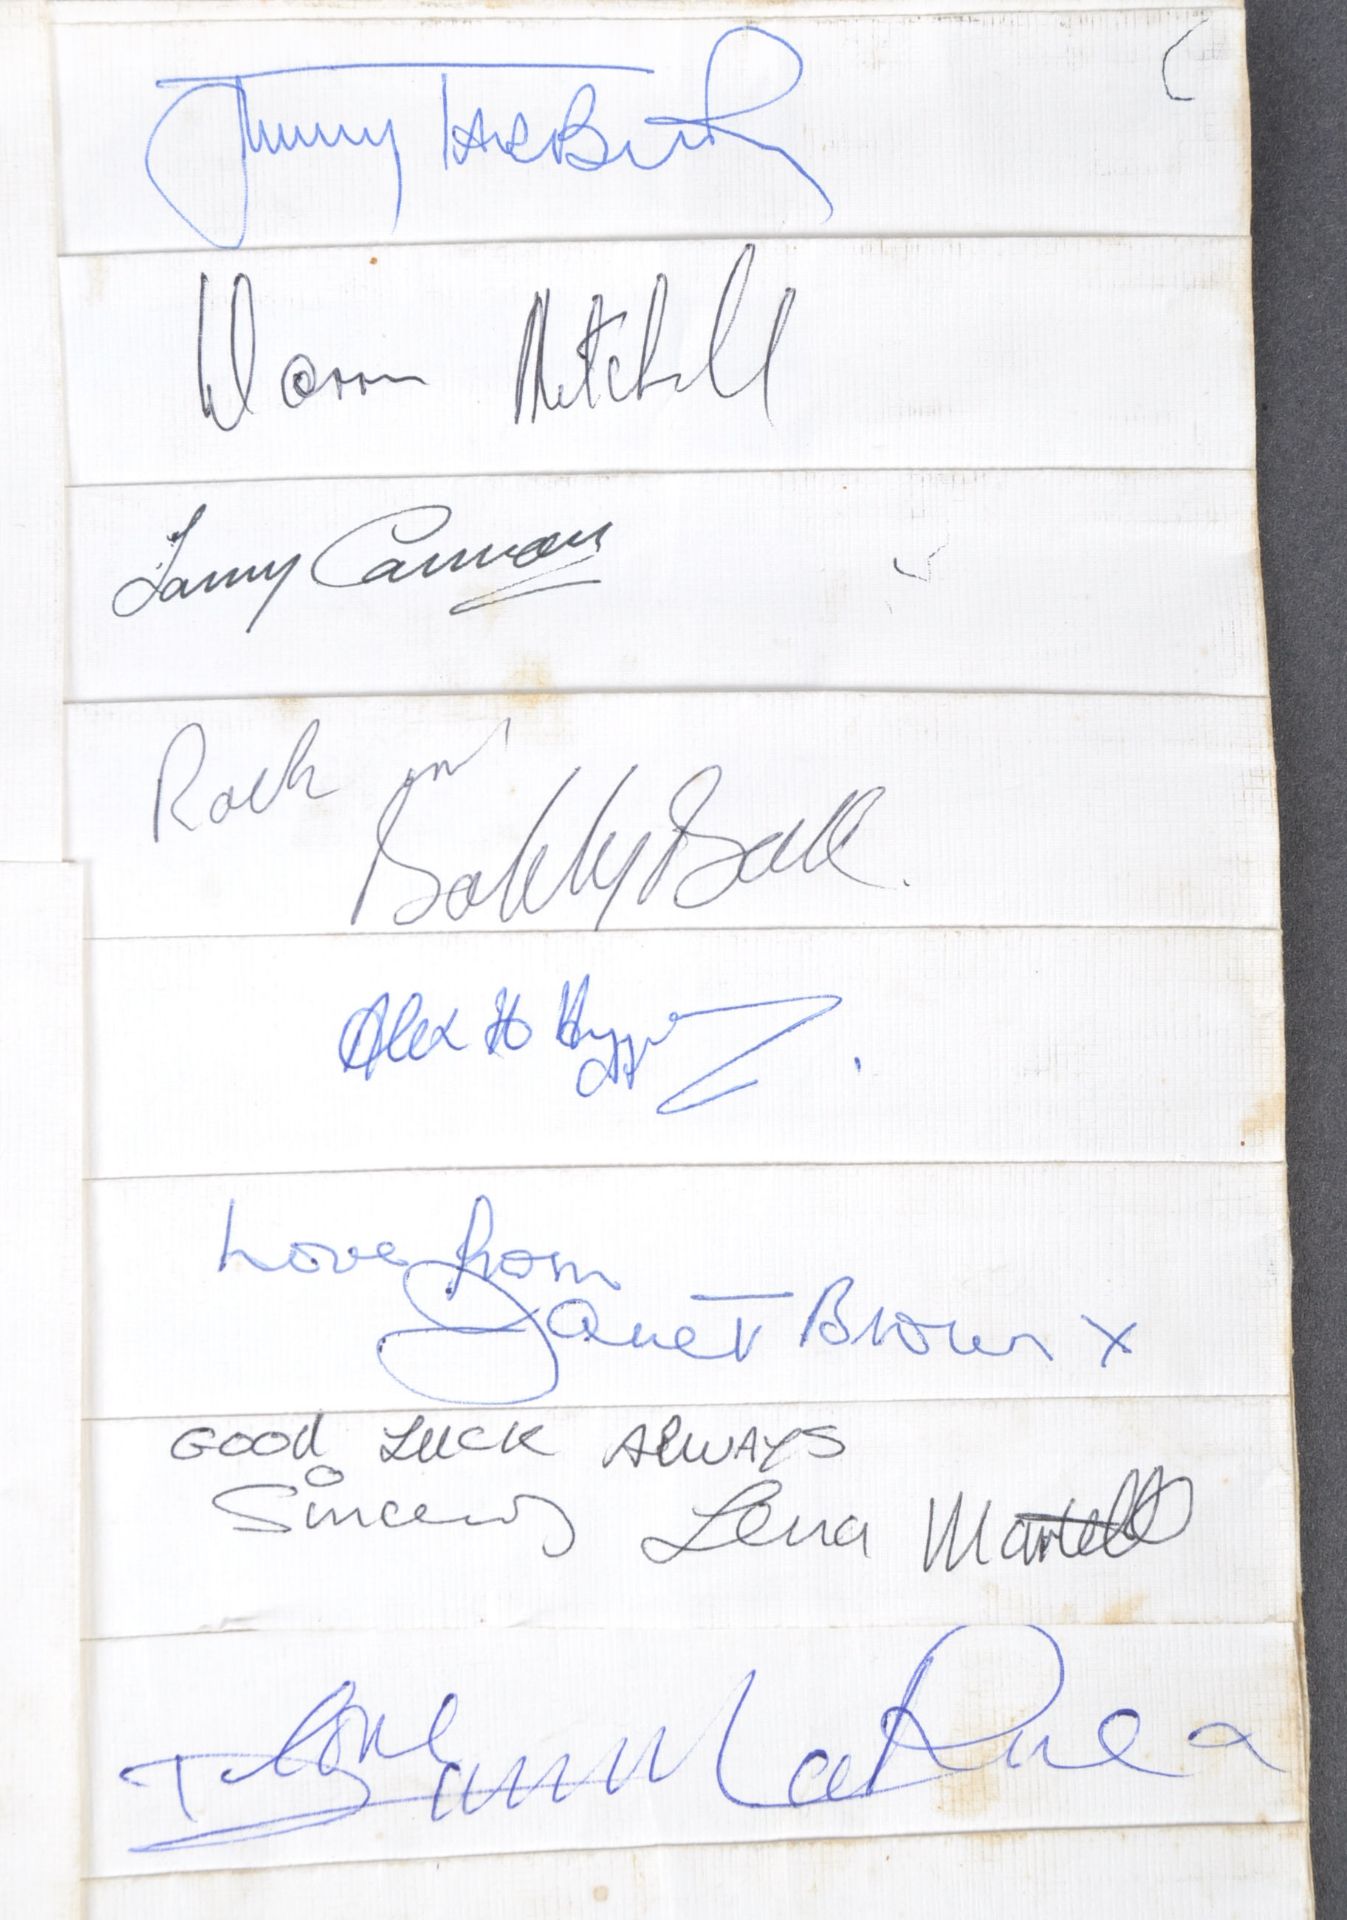 Jimmy Tarbuck
Warren Mitchell
Tommy Cannon
Rock on
Bobby Ball.
Alex H Higgins
Love from
Janet Brown x
GOOD LUCK ALWAYS
Sincerely Lena Martell
Love
Danny La Rue